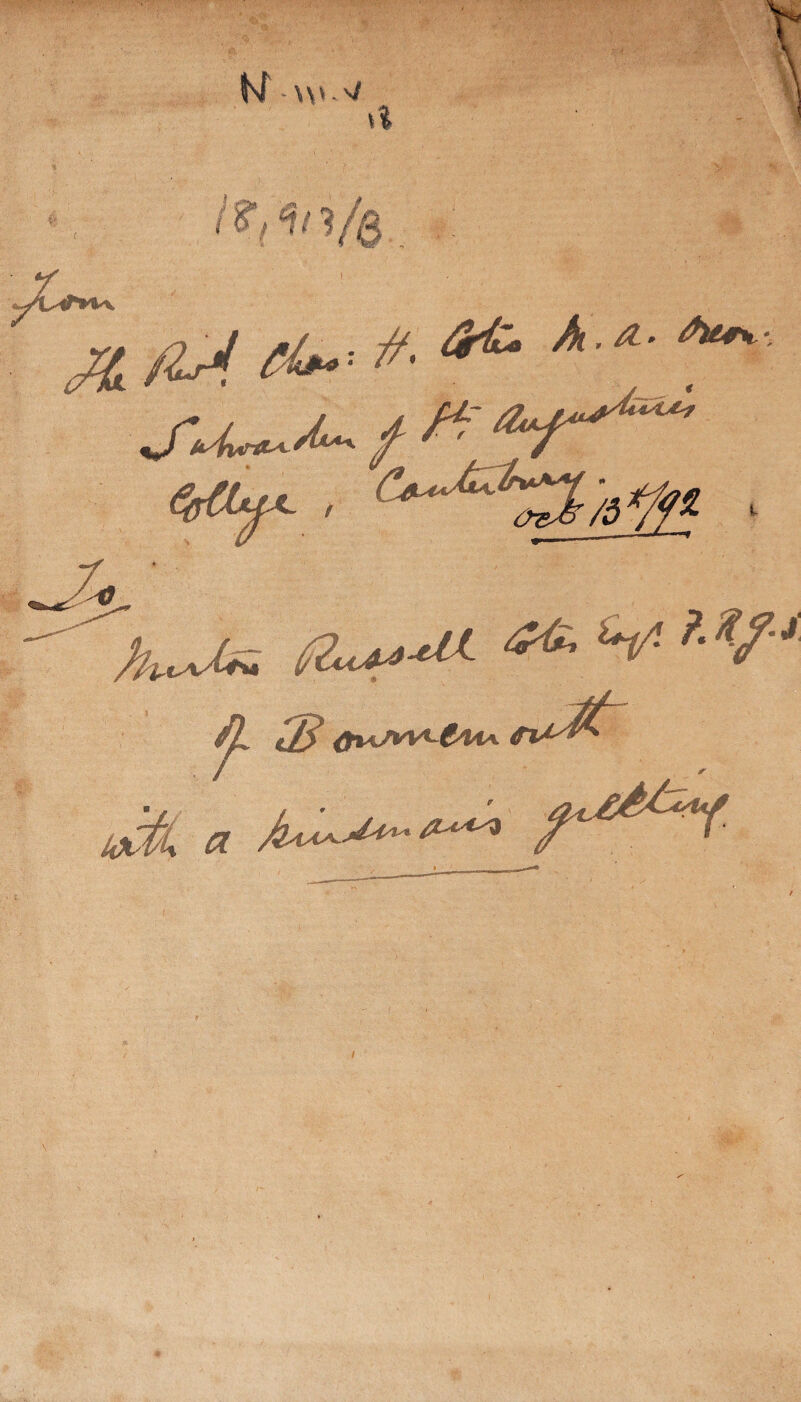 N. III. V
18
18,913/B
From
The Revd. Chas: H. Cotes M.A. Oxon:
Subwarden of St. Augustine's
College, Canterbury.
Oct 13th/92
To
Merton Russell Cotes Esqr. F.R.G.S.
of Bournemouth
with a kinsman's greeting.